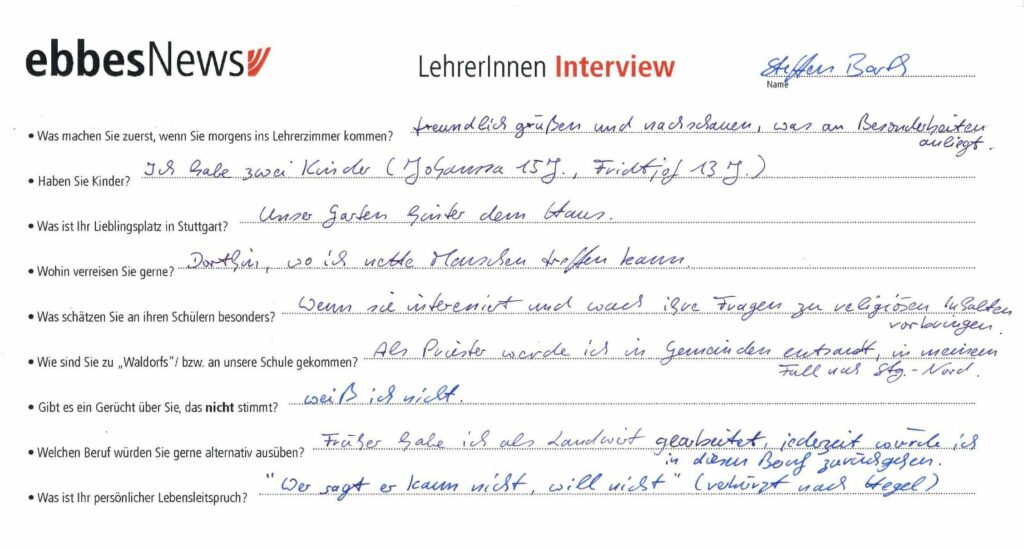 ebbesNews
LehrerInnen Interview
Steffen Barth
Name
• Was machen Sie zuerst, wenn Sie morgens ins Lehrerzimmer kommen? freundlich grüßen und nachschauen, was an Besonderheiten
anliegt.
• Haben Sie Kinder? Ich habe zwei Kinder (Johanna 15 J., Fridtjof 13 J.)
• Was ist Ihr Lieblingsplatz in Stuttgart? Unser Garten hinter dem Haus.
• Wohin verreisen Sie gerne? Dorthin, wo ich nette Menschen treffen kann.
• Was schätzen Sie an ihren Schülern besonders? Wenn sie interessiert und wach ihre Fragen zu religiösen Inhalten
vorbringen.
• Wie sind Sie zu „Waldorfs"/ bzw. an unsere Schule gekommen? Als Priester werde ich in Gemeinden entsandt, in meinem
Fall nach Stg.-Nord.
• Gibt es ein Gerücht über Sie, das nicht stimmt? weiß ich nicht.
• Welchen Beruf würden Sie gerne alternativ ausüben? Früher habe ich als Landwirt gearbeitet, jederzeit würde ich
in diesen Beruf zurückgehen.
• Was ist Ihr persönlicher Lebensleitspruch? "Wer sagt er kann nicht, will nicht" (verkürzt nach Hegel)